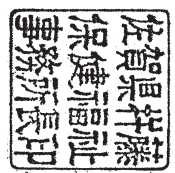 佐賀県杵藤
保健福祉
事務所長印